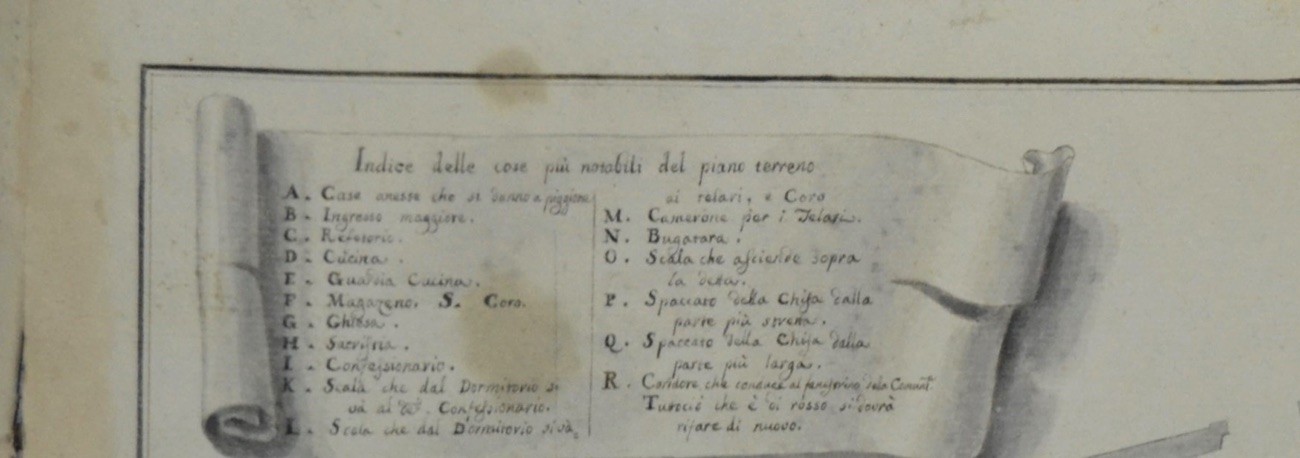 Indice delle cose più notabili del piano terreno
A. Case anesse che si danno a piggione
B. Ingresso maggiore.
C. Refetorio.
D. Cucina.
E. Guardia Cucina.
F. Magazeno. S. Coro.
G. Ghiesa.
H. Sacristia.
I. Confessionario.
K. Scala che dal Dormitorio si
và al Confessionario.
L. Scola che dal Dormitorio si và
ai telari, e Coro
M. Camerone per i Telari.
N. Bugarara.
O. Scala che assiende sopra
la detta.
P. Spaccato della Chisa dalla
parte più stretta.
Q. Spaccato della Chisa dalla
parte più larga.
R. Coridore che conduce al fenestrino dela
Tutociò che è di rosso si dovrà
rifare di nuovo.